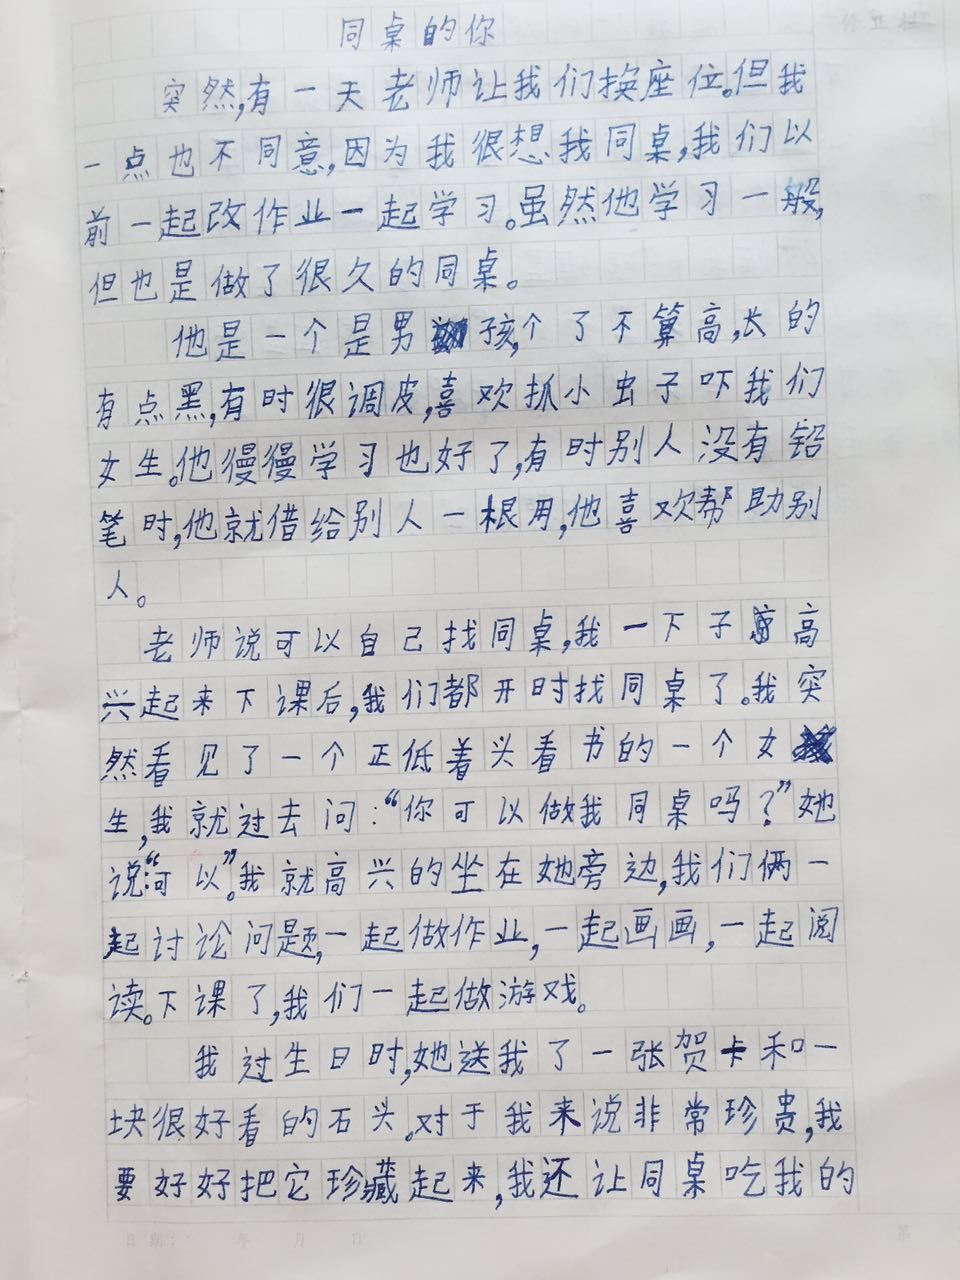 同桌的你
突然,有一天老师让我们换座位。但我
一点也不同意,因为我很想我同桌,我们以
前一起改作业一起学习。虽然他学习一般,
但也是做了很久的同桌。
他是一个是男孩,个了不算高,长的
有点黑,有时很调皮,喜欢抓小虫子吓我们
女生。他慢慢学习也好了,有时别人没有铅
笔时,他就借给别人一根用,他喜欢帮助别
人。
老师说可以自己找同桌,我一下子高
兴起来下课后,我们都开时找同桌了。我突
然看见了一个正低着头看书的一个女
生,我就过去问:“你可以做我同桌吗?”她
说:“可以”。我就高兴的坐在她旁边,我们俩一
起讨论问题,一起做作业,一起画画,一起阅
读。下课了,我们一起做游戏。
我过生日时,她送我了一张贺卡和一
块很好看的石头。对于我来说非常珍贵,我
要好好把它珍藏起来,我还让同桌吃我的
日期: 年 月 日 第